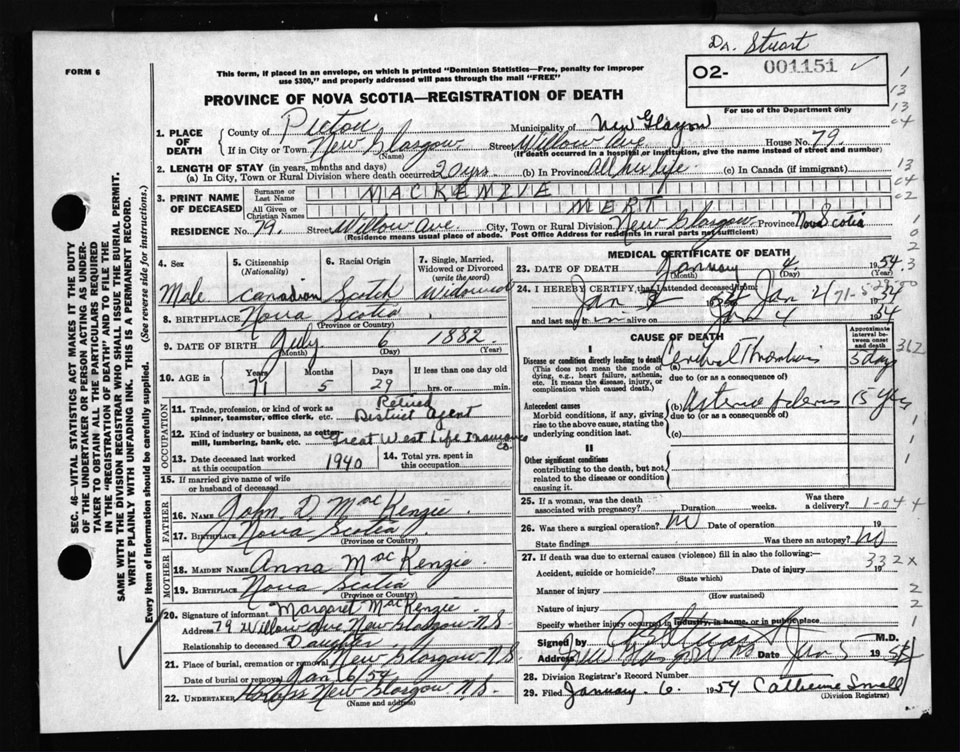 Dr. Stuart
FORM 6
This form, if placed in an envelope, on which is printed "Dominion Statistics—Free, penalty for improper
use $300," and properly addressed will pass through the mail "FREE"
O2- 001151
For use of the Department only
PROVINCE OF NOVA SCOTIA—REGISTRATION OF DEATH
1. PLACE OF DEATH County of Pictou Municipality of New Glasgow
If in City or Town New Glasgow (Name) Street Willow Ave. House No. 79.
(If death occurred in a hospital or institution, give the name instead of street and number)
2. LENGTH OF STAY (in years, months and days)
(a) In City, Town or Rural Division where death occurred 20 yrs. (b) In Province All his life (c) In Canada (if immigrant)
3. PRINT NAME OF DECEASED Surname or Last Name MACKENZIE
All Given or Christian Names MERT
RESIDENCE No. 79. Street Willow Ave. City, Town or Rural Division New Glasgow Province Nova Scotia
(Residence means usual place of abode. Post Office Address for residents in rural parts not sufficient)
4. Sex Male
5. Citizenship (Nationality) Canadian
6. Racial Origin Scotch
7. Single, Married, Widowed or Divorced (write the word) Widowed
8. BIRTHPLACE Nova Scotia
(Province or Country)
9. DATE OF BIRTH July 6 1882
(Month) (Day) (Year)
10. AGE in Years 71 Months 5 Days 29 If less than one day old
hrs. or min.
OCCUPATION
11. Trade, profession, or kind of work as spinner, teamster, office clerk, etc. Retired District Agent
12. Kind of industry or business, as cotton mill, lumbering, bank, etc. Great West Life Insurance Co.
13. Date deceased last worked at this occupation 1940
14. Total yrs. spent in this occupation
15. If married give name of wife or husband of deceased
FATHER
16. NAME John D. MacKenzie
17. BIRTHPLACE Nova Scotia
(Province or Country)
MOTHER
18. MAIDEN NAME Anna MacKenzie
19. BIRTHPLACE Nova Scotia
(Province or Country)
20. Signature of informant Margaret MacKenzie
Address 79 Willow Ave New Glasgow N.S.
Relationship to deceased Daughter
21. Place of burial, cremation or removal New Glasgow N.S.
Date of burial or removal Jan 6/54
22. UNDERTAKER New Glasgow N.S.
(Name and address)
MEDICAL CERTIFICATE OF DEATH
23. DATE OF DEATH January 4 1954
(Month) (Day) (Year)
24. I HEREBY CERTIFY, that I attended deceased from
Jan
and last saw him alive on Jan 4
CAUSE OF DEATH
Approximate interval between onset and death
I
Disease or condition directly leading to death (a) Cerebral Thrombosis 3 days
(This does not mean the mode of dying, e.g., heart failure, asthenia, etc. It means the disease, injury, or complication which caused death.)
due to (or as a consequence of)
Antecedent causes (b) 15 yrs
Morbid conditions, if any, giving rise to the above cause, stating the underlying condition last.
due to (or as a consequence of)
(c)
II
Other significant conditions
contributing to the death, but not related to the disease or condition causing it.
25. If a woman, was the death associated with pregnancy? Duration weeks. Was there a delivery?
26. Was there surgical operation? no Date of operation 19
State findings Was there an autopsy? no
27. If death was due to external causes (violence) fill in also the following:—
Accident, suicide or homicide? (State which) Date of injury 19
Manner of injury
(How sustained)
Nature of injury
Specify whether injury occurred in industry, in home, or in public place
Signed by M.D.
Address New Glasgow NS Date Jan 5 1954
28. Division Registrar's Record Number
29. Filed January 6. 1954 Catherine Small
(Division Registrar)
SEC. 46—VITAL STATISTICS ACT MAKES IT THE DUTY
OF THE UNDERTAKER OR PERSON ACTING AS UNDER-
TAKER TO OBTAIN ALL THE PARTICULARS REQUIRED
IN THE "REGISTRATION OF DEATH" AND TO FILE THE
SAME WITH THE DIVISION REGISTRAR WHO SHALL ISSUE THE BURIAL PERMIT.
WRITE PLAINLY WITH UNFADING INK. THIS IS A PERMANENT RECORD.
Every item of Information should be carefully supplied. (See reverse side for instructions.)
1
13
13
04
13
04
02
362
1-04
332x
2
2
1